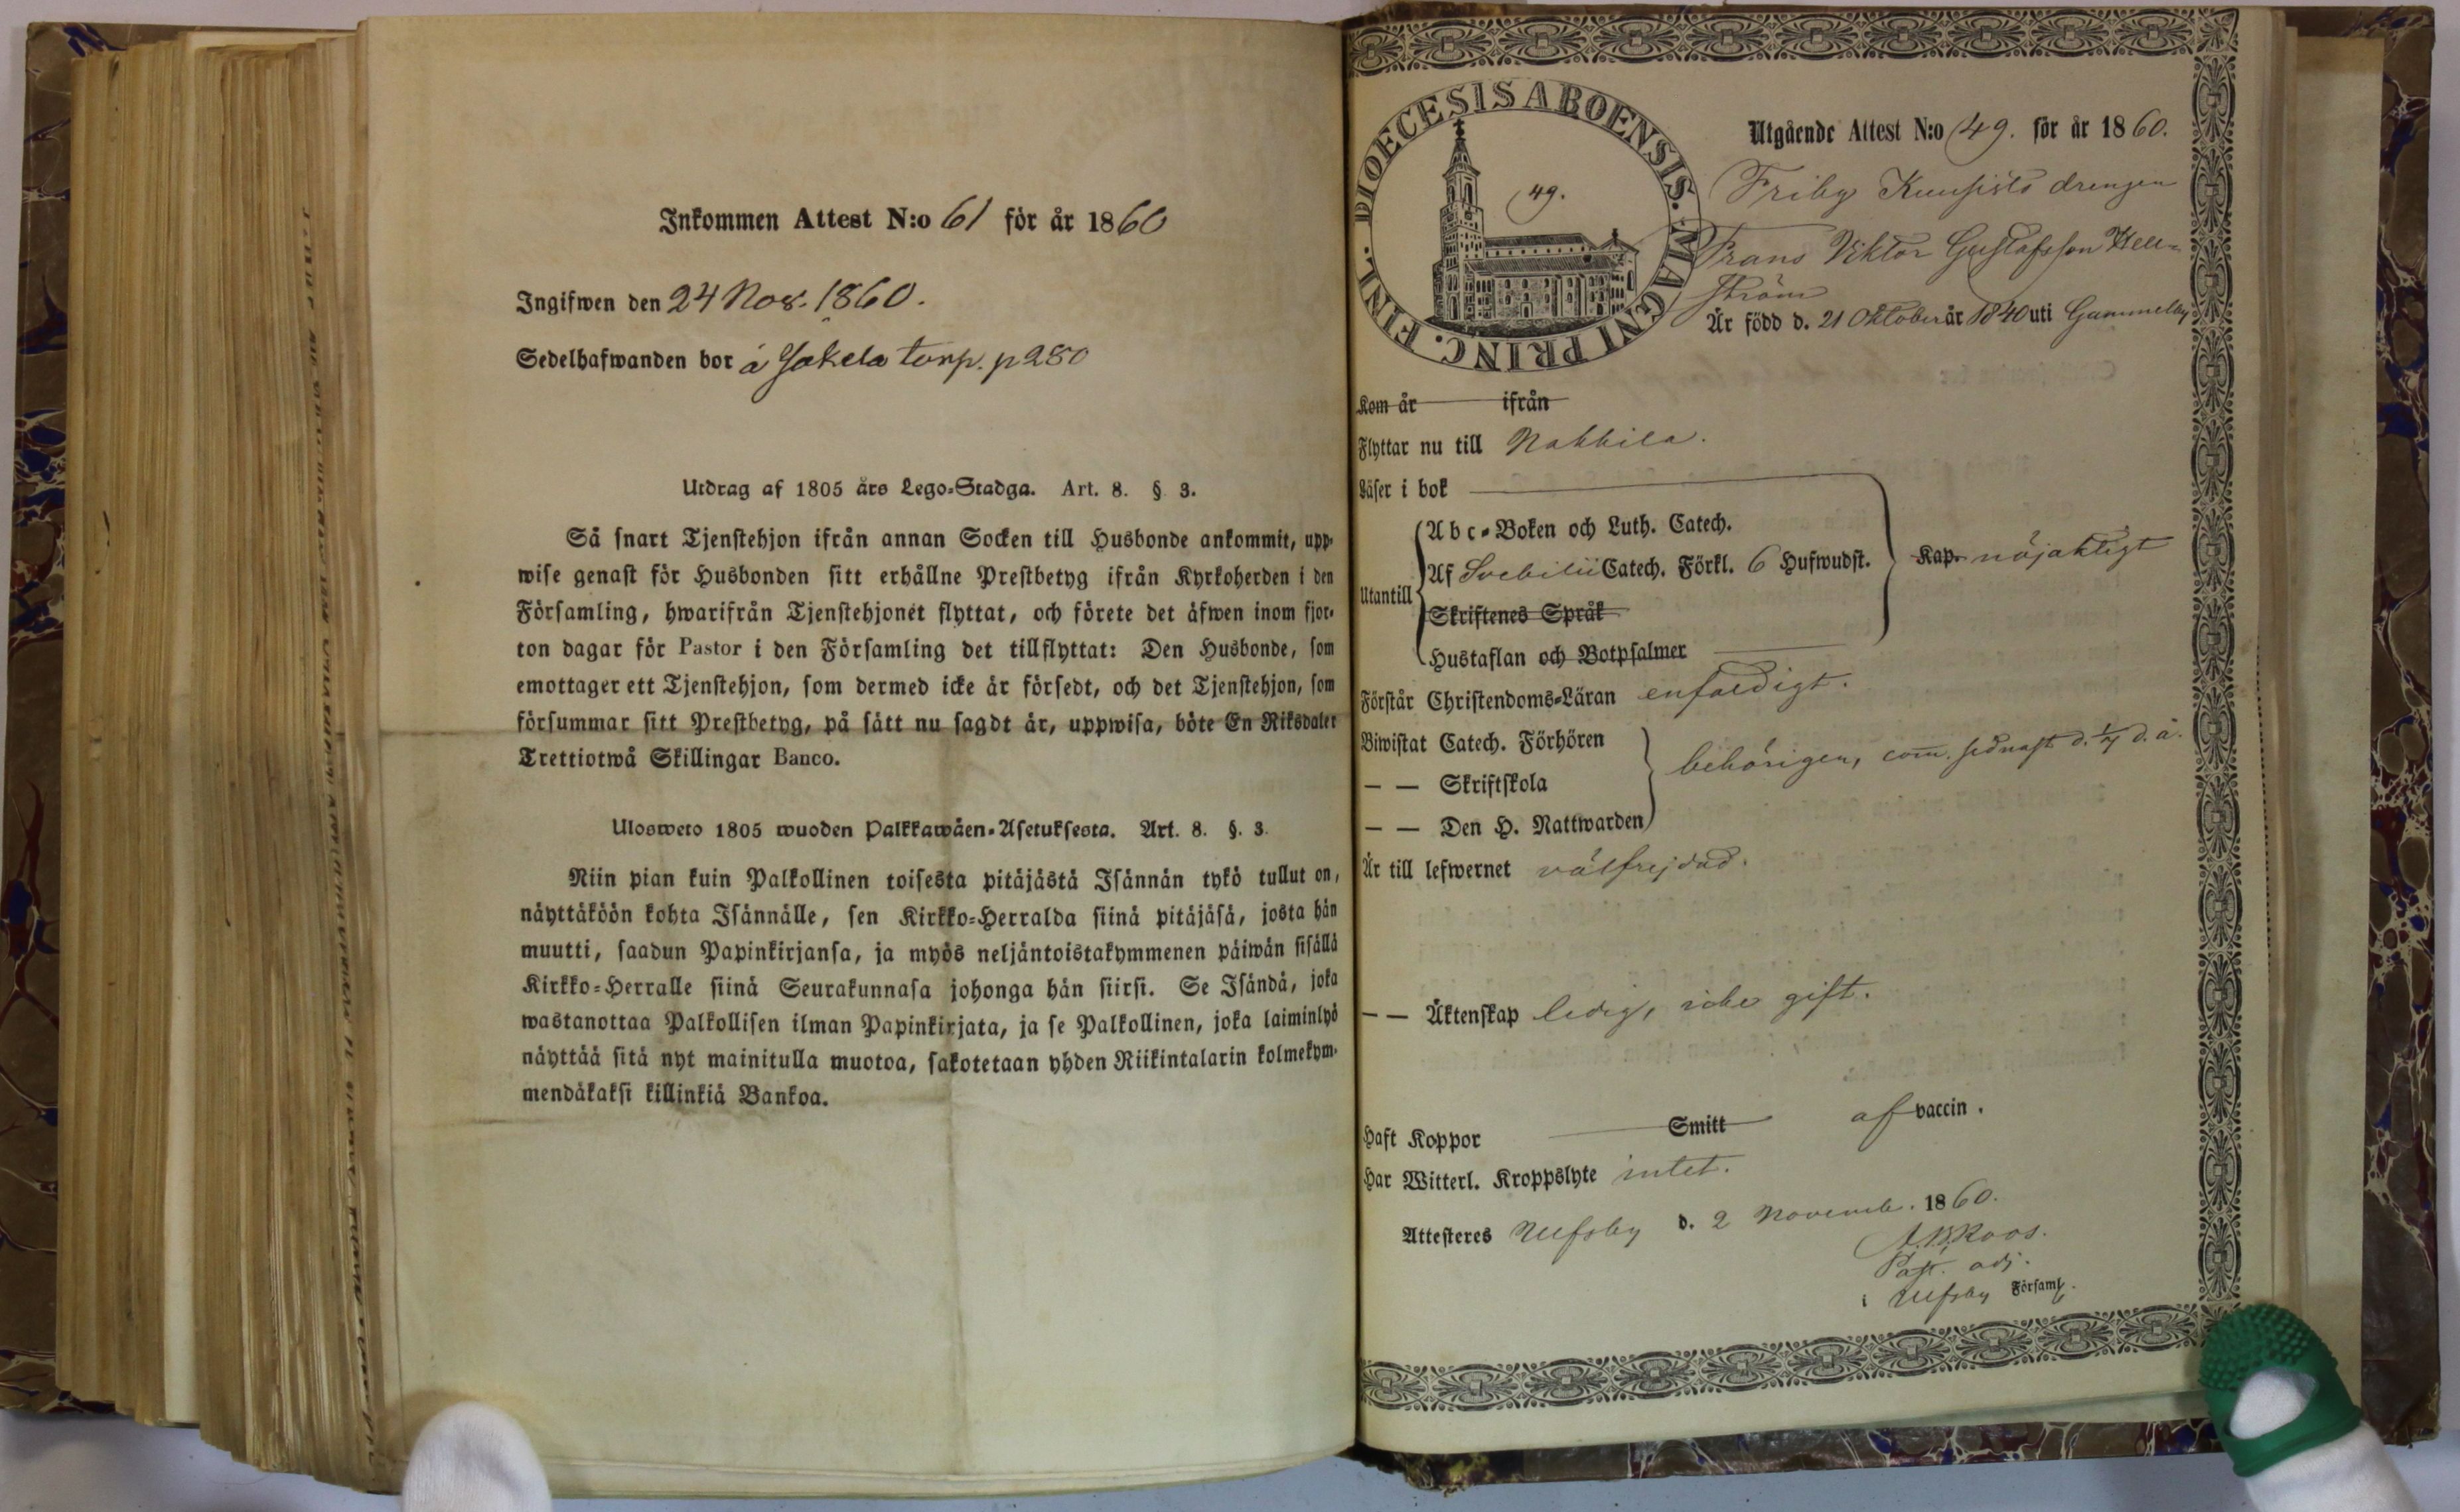 Inkommen Attest N:o 61 för år 1860
Ingifwen den 24 Nov. 1860.
Sedelhafwanden bor å Jakela torp. p 280
Utdrag af 1805 års Lego-Stadga. Art. 8. § 3.
Så snart Tjenstehjon ifrån annan Socken till Husbonde ankommit, upp-
wise genast för Husbonden sitt erhållne Prestbetyg ifrån Kyrkoherden i den
Församling, hwarifrån Tjenstehjonet flyttat, och förete det äfwen inom fjor-
ton dagar för Pastor i den Församling det tillflyttat: Den Husbonde, som
emottager ett Tjenstehjon, som dermed icke är försedt, och det Tjenstehjon, som
försummar sitt Prestbetyg, på sätt nu sagdt är, uppwisa, böte En Riksdaler
Trettiotwå Skillingar Banco.
Ulosweto 1805 wuoden Palkkawäen-Asetuksesta. Art. 8. §. 3.
Niin pian kuin Palkollinen toisesta pitäjästä Isännän tykö tullut on,
näyttäköön kohta Isännälle, sen Kirkko-Herralda siinä pitäjäsä, josta hän
muutti, saadun Papinkirjansa, ja myös neljäntoistakymmenen päiwän sisällä
Kirkko-Herralle siinä Seurakunnasa johonga hän siirsi. Se Isändä, joka
wastanottaa Palkollisen ilman Papinkirjata, ja se Palkollinen, joka laiminlyö
näyttää sitä nyt mainitulla muotoa, sakotetaan yhden Riikintalarin kolmekym-
mendäkaksi killinkiä Bankoa.
DIOECESIS ABOENSIS. MAGNI PRINC. FINL.
49.
Utgående Attest N:o 49. för år 1860.
Friby Kuusisto drengen
Frans Viktor Gustafsson Hell-
ström
Är född d. 21 Oktober år 1840 uti Gammelby
Kom år ifrån
Flyttar nu till Nakkila.
Läser i bok
Utantill
Abc-Boken och Luth. Catech.
Af Svebilii Catech. Förkl. 6 Hufwudst.
Skriftenes Språk
Hustaflan och Botpsalmer
Kap. nöjaktigt
Förstår Christendoms-Läran enfaldigt.
Biwistat Catech. Förhören
— — Skriftskola
— — Den H. Nattwarden
behörigen, com. sednast d. 1/7 d. å.
Är till lefwernet välfrejdad.
— — Äktenskap ledig, icke gift.
Haft Koppor Smitt af vaccin.
Har Witterl. Kroppslyte intet.
Attesteres Ulfsby d. 2 Novemb. 1860.
Past. adj.
i Ulfsby Församl.